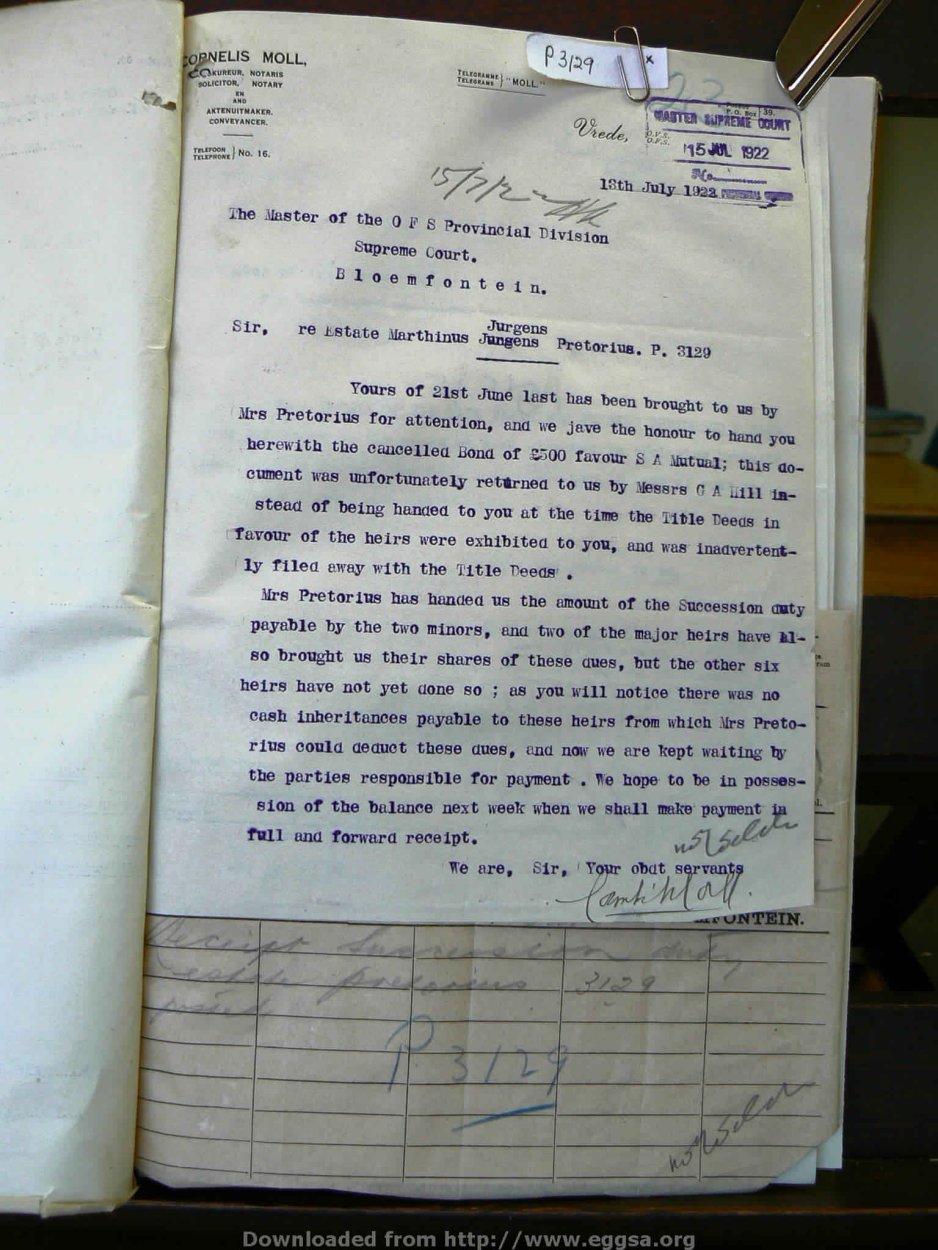 CORNELIS MOLL,
PROKUREUR, NOTARIS
SOLICITOR, NOTARY
EN
AND
AKTENUITMAKER.
CONVEYANCER.
TELEFOON
TELEPHONE } No. 16.
TELEGRAMME
TELEGRAMS } "MOLL."
P 3129
x
P.O. Box 39.
Vrede, O.V.S.
O.F.S.
MASTER SUPREME COURT
15 JUL 1922
No.
15/7/2
13th July 1922
The Master of the O F S Provincial Division
Supreme Court.
B l o e m f o n t e i n.
Jurgens
Sir, re Estate Marthinus Jungens Pretorius. P. 3129
Yours of 21st June last has been brought to us by
Mrs Pretorius for attention, and we jave the honour to hand you
herewith the cancelled Bond of £500 favour S A Mutual; this do-
cument was unfortunately returned to us by Messrs G A Hill in-
stead of being handed to you at the time the Title Deeds in
favour of the heirs were exhibited to you, and was inadvertent-
ly filed away with the Title Deeds .
Mrs Pretorius has handed us the amount of the Succession duty
payable by the two minors, and two of the major heirs have al-
so brought us their shares of these dues, but the other six
heirs have not yet done so ; as you will notice there was no
cash inheritances payable to these heirs from which Mrs Preto-
rius could deduct these dues, and now we are kept waiting by
the parties responsible for payment . We hope to be in posses-
sion of the balance next week when we shall make payment in
full and forward receipt.
We are, Sir, Your obdt servants
MFONTEIN.
Receipt Succession duty
estate pretorius 3129
P 3129
Downloaded from http://www.eggsa.org